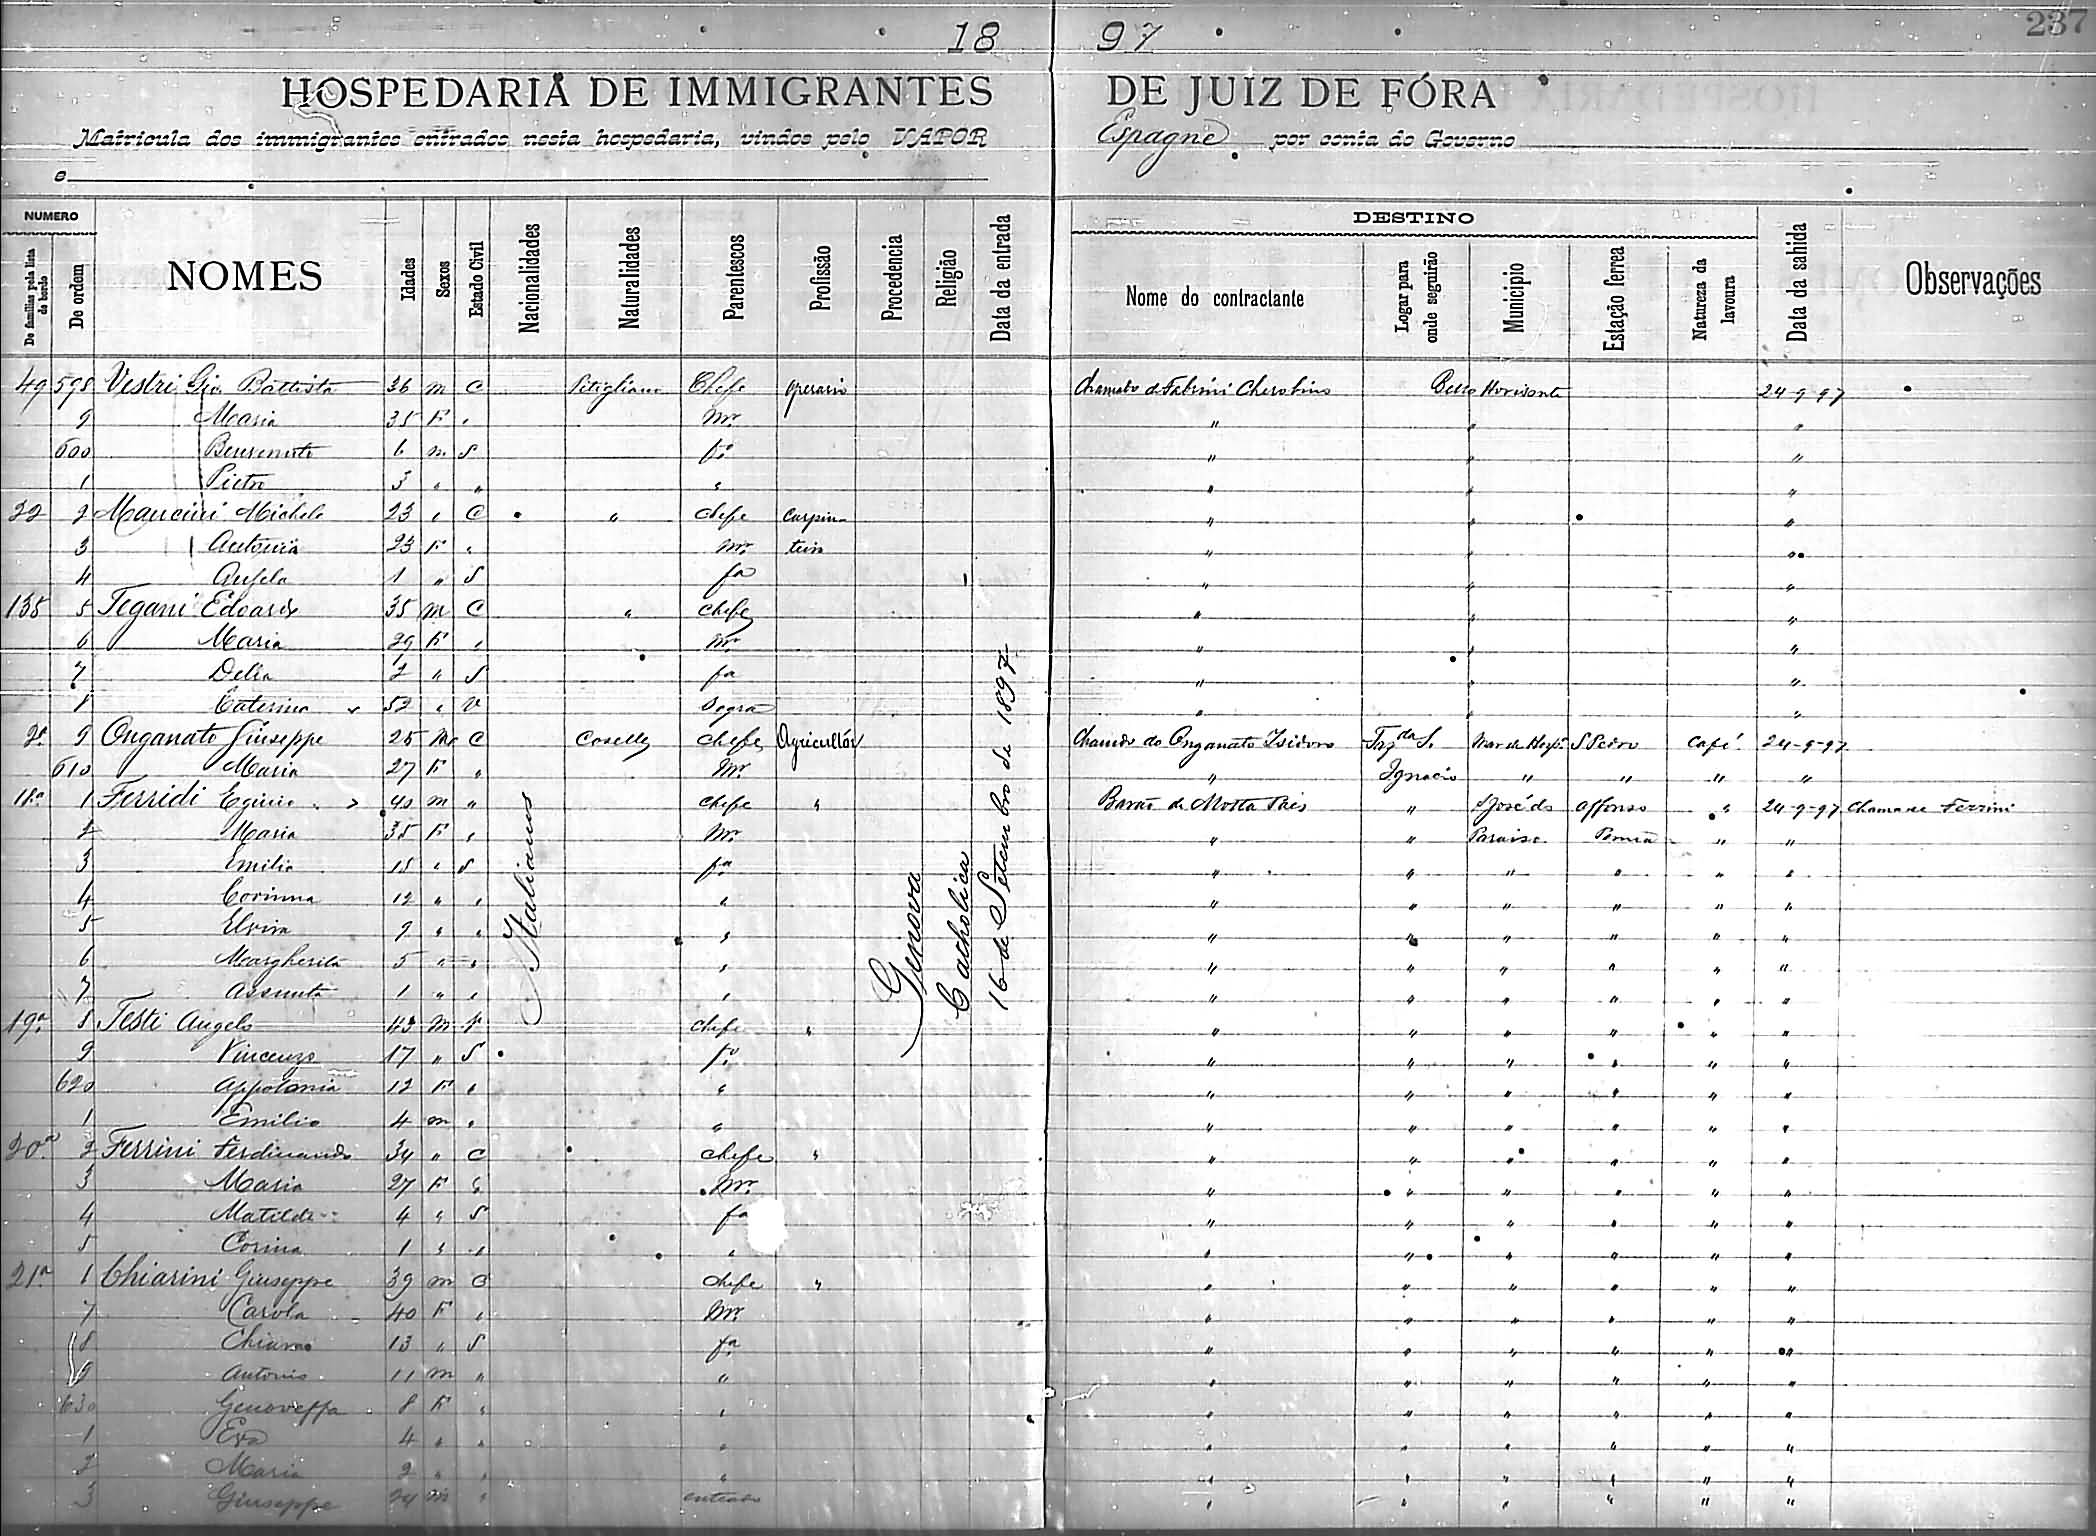 237
18 97
HOSPEDARIA DE IMMIGRANTES DE JUIZ DE FÓRA
Matricula dos immigrantes entrados nesta hospedaria, vindos pelo VAPOR Espagne por conta do Governo
e
NUMERO DESTINO
De familias pela lista de bordo De ordem NOMES Idades Sexos Estado Civil Nacionalidades Naturalidades Parentescos Profissão Procedencia Religião Data da entrada Nome do contractante Logar para onde seguirão Municipio Estação ferrea Natureza da lavoura Data da sahida Observações
Italianus Genova Catholica 16 de Setembro de 1897
49 598 Vestri Gio. Battista 36 m C Pitigliano Chefe operario Chamado de Fabrini Cherobino Bello Horisonte 24-9-97
9 Maria 35 F " Mr. " " "
600 Benvenuto 6 m S fo. " " "
1 Pietro 3 " " " " " "
22 2 Mancini Michele 23 " C " Chefe Carpin- " " "
3 Antonia 23 F " Mr. teiro " " "
4 Angela 1 " S fa " " "
135 5 Tegani Edoardo 35 m C " Chefe " " "
6 Maria 29 F " Mr. " " "
7 Delia 2 " S fa " " "
8 Caterina 52 " V Sogra " " "
2ª 9 Onganato Giuseppe 25 m C Chefe Agricultôr Chamdo do Onganato Isidoro Fazda S. Mar de Hespa S Pedro Café 24-9-97
610 Maria 27 F " Mr. " Ignacio " " " "
18ª 1 Ferridi Eginio 40 m " Chefe " Barão de Motta Paes " S José do Affonso " 24-9-97 Chama-se Ferrini
2 Maria 35 F " Mr. " " Paraiso Penna " "
3 Emilia 15 " S fa " " " " " "
4 Corinna 12 " " " " " " " " "
5 Elvira 9 " " " " " " " " "
6 Margherita 5 " " " " " " " " "
7 Assunta 1 " " " " " " " " "
19ª 8 Testi Angelo 43 m V Chefe " " " " " " "
9 Vincenzo 17 " S fo " " " " " "
620 Appolonia 12 F " " " " " " " "
1 Emilio 4 m " " " " " " " "
20ª 2 Ferrini Ferdinando 34 " C Chefe " " " " " " "
3 Maria 27 F " Mr. " " " " " "
4 Matilde 4 " S fa " " " " " "
5 Corina 1 " " " " " " " " "
21ª 1 Chiarini Giuseppe 39 m C Chefe " " " " " " "
7 Carola 40 F " Mr. " " " " " "
8 13 " S fa " " " " " "
9 Antonio 11 m " " " " " " " "
630 Genoveffa 8 F " " " " " " " "
1 Eva 4 " " " " " " " " "
2 Maria 2 " " " " " " " " "
3 Giuseppe 24 m " " " " " " "